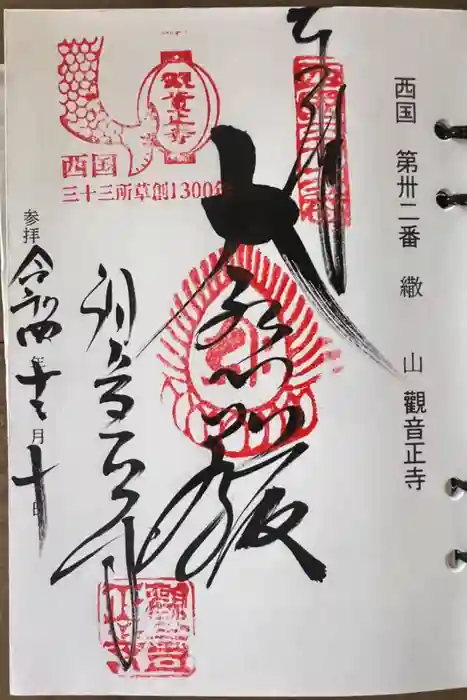 西国 第卅二番 繖 山 觀音正寺
奉拝
大悲殿
観音正寺
参拝 令和四年十二月十日
観音正寺
西国
三十三所草創1300年